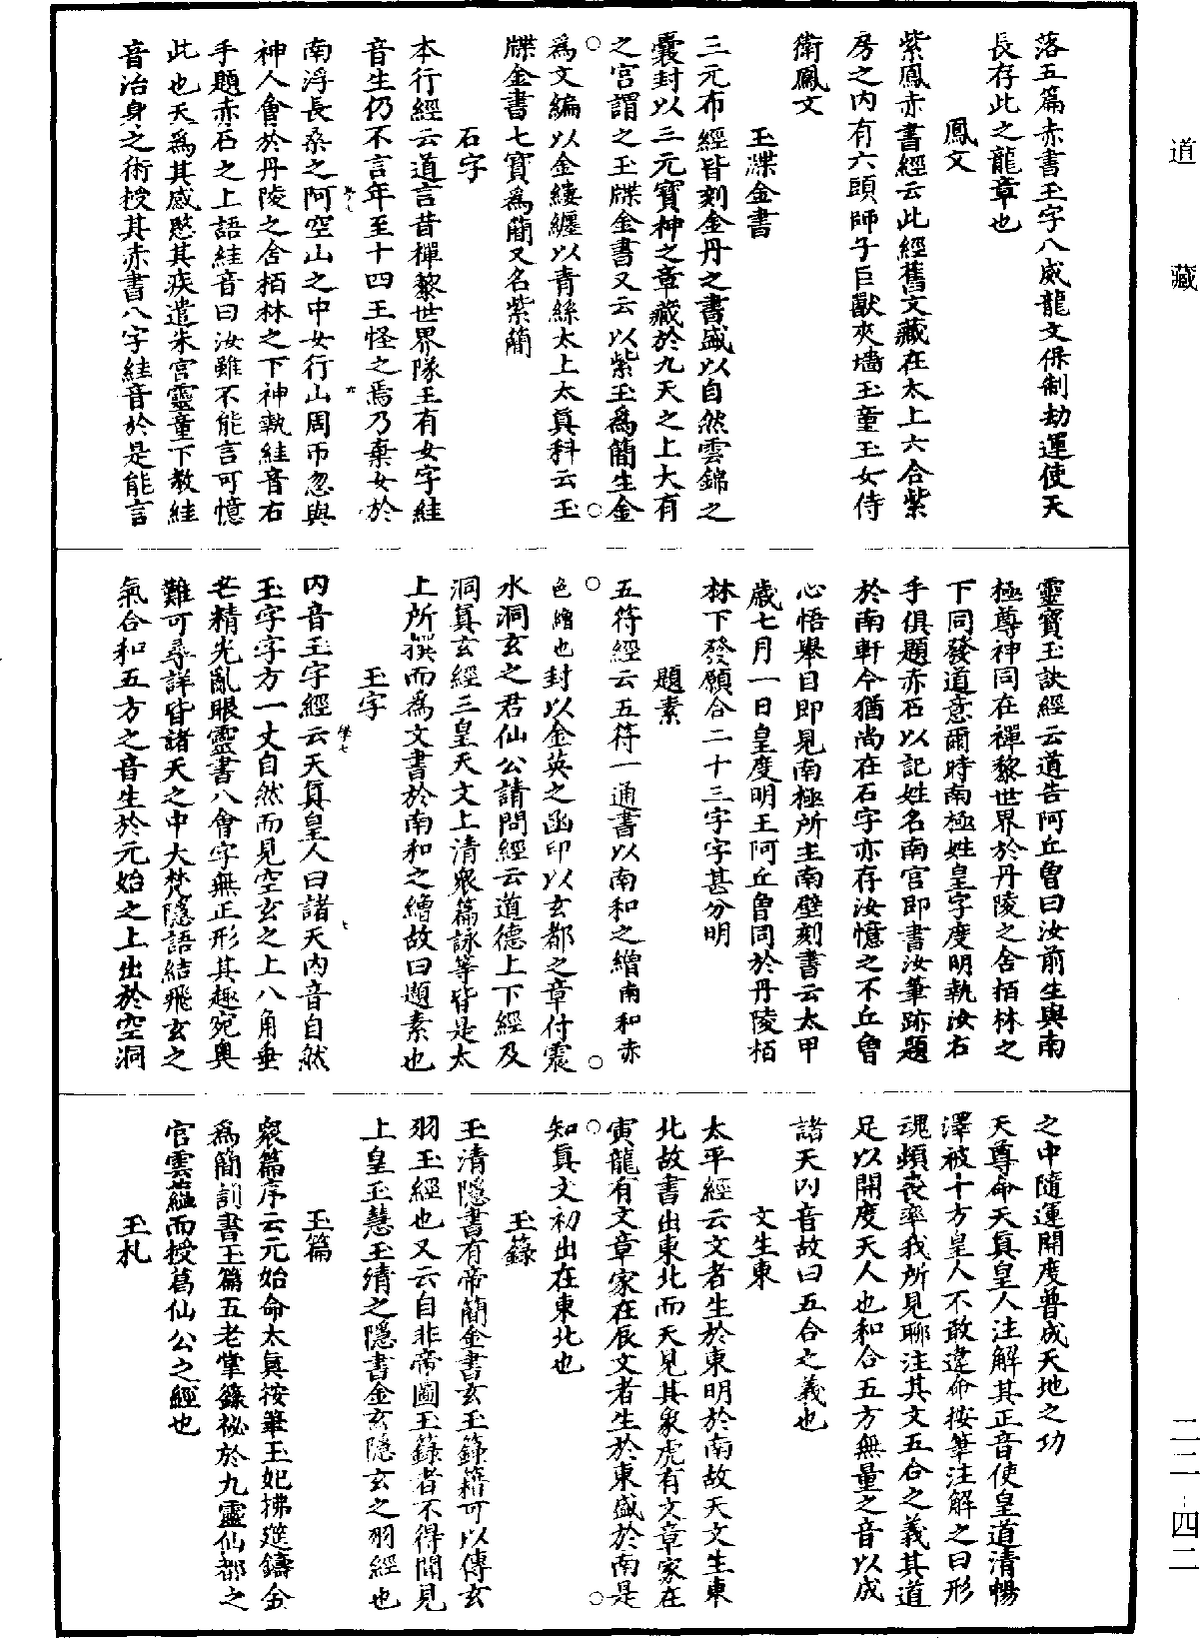 落五篇赤書玉字八威龍文保制劫運使天
長存此之龍章也
鳳文
紫鳳赤書經云此經舊文藏在太上六合紫
房之内有六頭師子巨獸夾墻玉童玉女侍
衛鳳文
玉牒金書
三元布經皆刻金丹之書盛以自然雲錦之
囊封以三元寶神之章藏於九天之上大有
之宫謂之玉牒金書又云以紫玉爲簡生金
爲文編以金縷纏以青絲太上太真科云玉
牒金書七寶爲簡又名紫簡
石字
本行經云道言昔禪黎世界隊王有女字絓
音生仍不言年至十四王怪之焉乃棄女於
南浮長桑之阿空山之中女行山周帀忽與
神人會於丹陵之舍栢林之下神執絓音右
手題赤石之上語絓音曰汝雖不能言可憶
此也天爲其感愍其疾遣朱宫靈童下教絓
音治身之術授其赤書八字絓音於是能言
靈寶玉訣經云道告阿丘曾曰汝前生與南
極尊神同在禪黎世界於丹陵之舍栢林之
下同發道意爾時南極姓皇字度明執汝右
手俱題赤石以記姓名南宫即書汝筆跡題
於南軒今猶尚在石字亦存汝憶之不丘曾
心悟舉目即見南極所主南壁刻書云太甲
歲七月一日皇度明王阿丘曾同於丹陵栢
林下發願合二十三字字甚分明
題素
五符經云五符一通書以南和之繒南和赤
色繒也封以金英之函印以玄都之章付震
水洞玄之君仙公請問經云道德上下經及
洞真玄經三皇天文上清衆篇詠等皆是太
上所撰而爲文書於南和之繒故曰題素也
玉字
内音玉字經云天真皇人曰諸天内音自然
玉字字方一丈自然而見空玄之上八角垂
芒精光亂眼靈書八會字無正形其趣宛奥
難可尋詳皆諸天之中大梵隱語結飛玄之
氣合和五方之音生於元始之上出於空洞
之中隨運開度普成天地之功
天尊命天真皇人注解其正音使皇道清暢
澤被十方皇人不敢違命按筆注解之曰形
魂頓喪率我所見聊注其文五合之義其道
足以開度天人也和合五方無量之音以成
諸天内音故曰五合之義也
文生東
太平經云文者生於東明於南故天文生東
北故書出東北而天見其象虎有文章家在
寅龍有文章家在辰文者生於東盛於南是
知真文初出在東北也
玉籙
玉清隱書有帝簡金書玄玉籙籍可以傳玄
羽玉經也又云自非帝圖玉籙者不得聞見
上皇玉慧玉清之隱書金玄隱玄之羽經也
玉篇
衆篇序云元始命太真按筆玉妃拂筵鑄金
爲簡訓書玉篇五老掌籙祕於九靈仙都之
宫雲蘊而授葛仙公之經也
玉札
道藏
二二-四二